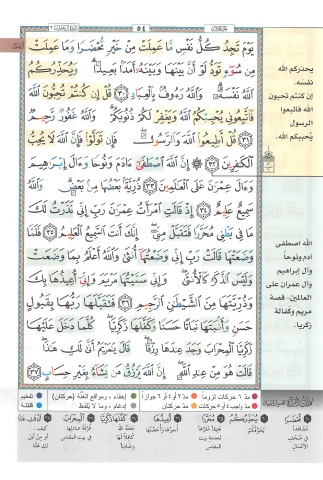 ٥٤
يَوْمَ تَجِدُ كُلُّ نَفْسٍ مَّا عَمِلَتْ مِنْ خَيْرٍ مُّحْضَرًا وَمَا عَمِلَتْ
مِن سُوٓءٍ تَوَدُّ لَوْ أَنَّ بَيْنَهَا وَبَيْنَهُۥٓ أَمَدًۢا بَعِيدًا ۗ وَيُحَذِّرُكُمُ
ٱللَّهُ نَفْسَهُۥ ۗ وَٱللَّهُ رَءُوفٌۢ بِٱلْعِبَادِ ٣٠ قُلْ إِن كُنتُمْ تُحِبُّونَ ٱللَّهَ
فَٱتَّبِعُونِى يُحْبِبْكُمُ ٱللَّهُ وَيَغْفِرْ لَكُمْ ذُنُوبَكُمْ ۗ وَٱللَّهُ غَفُورٌ رَّحِيمٌ
٣١ قُلْ أَطِيعُوا۟ ٱللَّهَ وَٱلرَّسُولَ ۖ فَإِن تَوَلَّوْا۟ فَإِنَّ ٱللَّهَ لَا يُحِبُّ
ٱلْكَٰفِرِينَ ٣٢ إِنَّ ٱللَّهَ ٱصْطَفَىٰٓ ءَادَمَ وَنُوحًا وَءَالَ إِبْرَٰهِيمَ
وَءَالَ عِمْرَٰنَ عَلَى ٱلْعَٰلَمِينَ ٣٣ ذُرِّيَّةًۢ بَعْضُهَا مِنۢ بَعْضٍ ۗ وَٱللَّهُ
سَمِيعٌ عَلِيمٌ ٣٤ إِذْ قَالَتِ ٱمْرَأَتُ عِمْرَٰنَ رَبِّ إِنِّى نَذَرْتُ لَكَ
مَا فِى بَطْنِى مُحَرَّرًا فَتَقَبَّلْ مِنِّىٓ ۖ إِنَّكَ أَنتَ ٱلسَّمِيعُ ٱلْعَلِيمُ ٣٥ فَلَمَّا
وَضَعَتْهَا قَالَتْ رَبِّ إِنِّى وَضَعْتُهَآ أُنثَىٰ وَٱللَّهُ أَعْلَمُ بِمَا وَضَعَتْ
وَلَيْسَ ٱلذَّكَرُ كَٱلْأُنثَىٰ ۖ وَإِنِّى سَمَّيْتُهَا مَرْيَمَ وَإِنِّىٓ أُعِيذُهَا بِكَ
وَذُرِّيَّتَهَا مِنَ ٱلشَّيْطَٰنِ ٱلرَّجِيمِ ٣٦ فَتَقَبَّلَهَا رَبُّهَا بِقَبُولٍ
حَسَنٍ وَأَنۢبَتَهَا نَبَاتًا حَسَنًا وَكَفَّلَهَا زَكَرِيَّا ۖ كُلَّمَا دَخَلَ عَلَيْهَا
زَكَرِيَّا ٱلْمِحْرَابَ وَجَدَ عِندَهَا رِزْقًا ۖ قَالَ يَٰمَرْيَمُ أَنَّىٰ لَكِ هَٰذَا ۖ
قَالَتْ هُوَ مِنْ عِندِ ٱللَّهِ ۖ إِنَّ ٱللَّهَ يَرْزُقُ مَن يَشَآءُ بِغَيْرِ حِسَابٍ ٣٧
يحذركم الله
نفسَه.
إن كنتم تحبون
الله فاتبعوا
الرسول
يُحببكم الله.
الله اصطفى
آدم ونوحاً
وآل إبراهيم
وآل عمران على
العالمين. قصة
مريم وكفالة
زكريا.
مدّ ٦ حركات لزوماً مدّ ٢ أو ٤ أو ٦ جوازاً إخفاء، ومواقع الغنّة (حركتان) تفخيم
مدّ واجب ٤ أو ٥ حركات مدّ حركتان إدغام، وما لا يُلفظ قلقلة